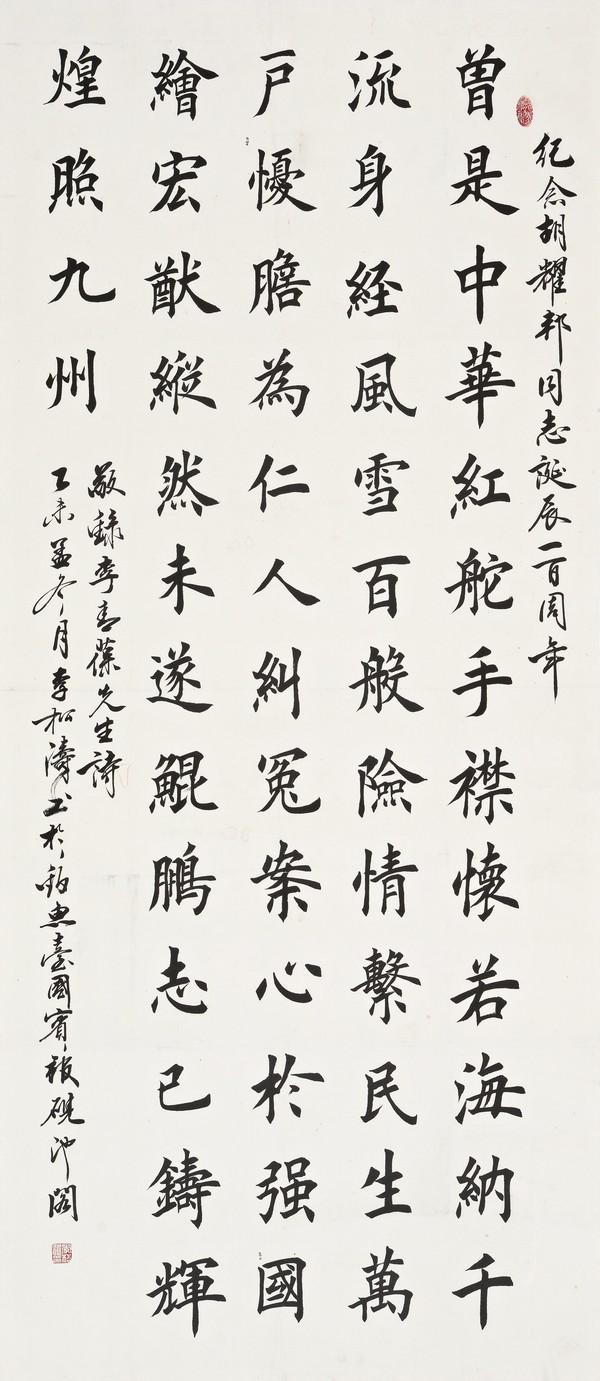 紀念胡耀邦同志誕辰一百周年
曾是中華紅舵手襟懷若海納千
流身経風雪百般險情繫民生萬
戸憂膽為仁人糾冤案心於强國
繪宏猷縱然未遂鯤鵬志已鑄輝
煌照九州
敬錄李青葆先生詩
乙未孟冬月李松濤書於釣魚臺國賓館硯池閣